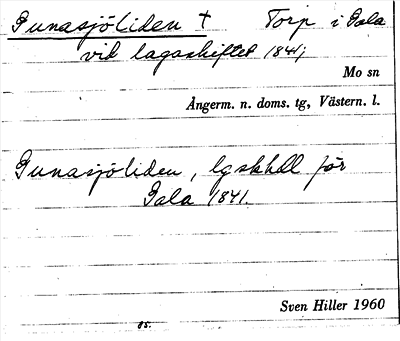 Gunasjöliden † Torp i Gala
vid lagaskiftet 1841;
Mo sn
Ångerm. n. doms. tg, Västern. l.
Gunasjöliden, lgskhdl för
Gala 1841.
Sven Hiller 1960
85.